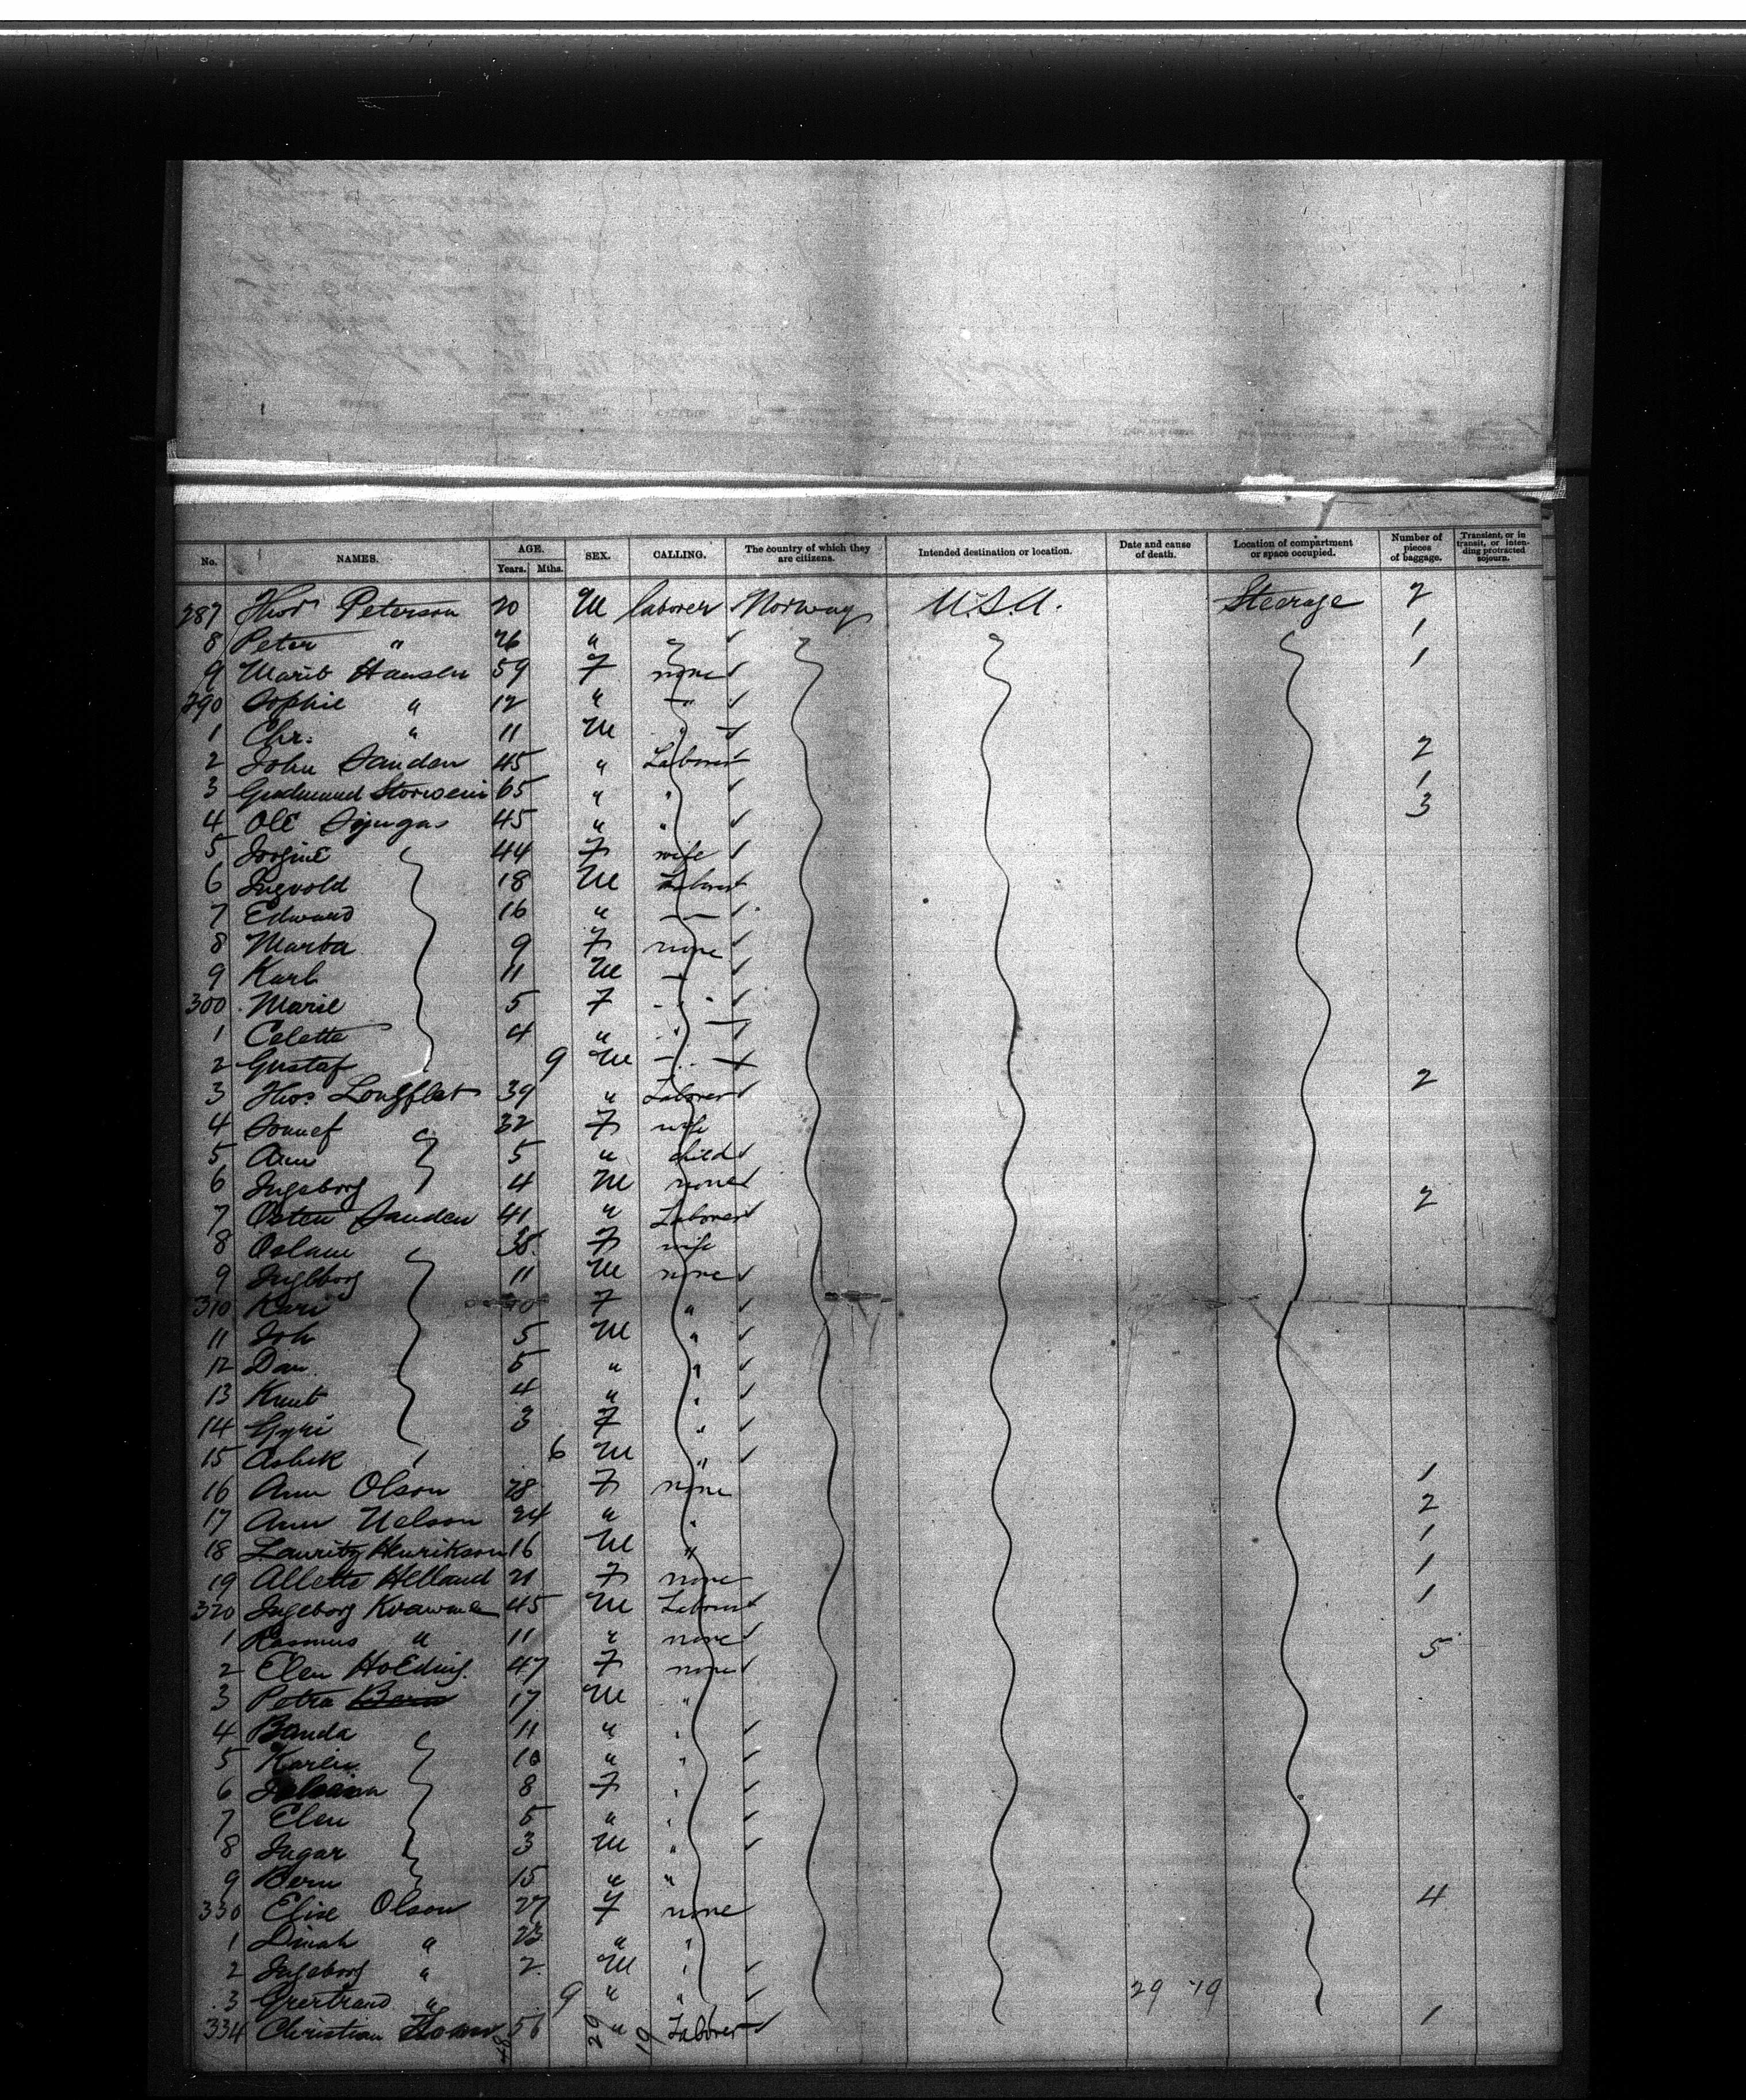 No. NAMES. AGE. Years. Mths. SEX. CALLING. The country of which they are citizens. Intended destination or location. Date and cause of death. Location of compartment or space occupied. Number of pieces of baggage. Transient, or in transit, or intending protracted sojourn.
287 Thos Peterson 20 M laborer Norway U.S.A. Steerage 2
8 Peter " 26 " 1
9 Marit Hansen 59 F none 1
290 Sophie " 12 " "
1 Chr: " 11 M "
2 John Sanden 45 " Laborer 2
3 Gudmund 65 " " 1
4 Ole 45 " " 3
5 44 F wife
6 Ingvold 18 M Laborer
7 Edward 16 "
8 Marta 9 F none
9 Karl 11 M
300 Marie 5 F
1 Celette 4 "
2 Gustaf 9 M
3 Thos. 39 " Laborer 2
4 32 F wife
5 Ann 5 " child
6 Ingeborg 4 M none
7 Osten Sanden 41 " Laborer 2
8 38 F wife
9 Inglborg 11 M none
310 Kari 10 F "
11 Joh 5 M "
12 Dan 5 " "
13 Knut 4 " "
14 3 F "
15 6 M "
16 Ann Olson 28 F none 1
17 Ann Nelson 24 " " 2
18 Lauritz Henrikson 16 M " 1
19 Allette Helland 21 F none 1
320 Ingeborg 45 M Laborer 1
1 Rasmus " 11 " none
2 Elen 47 F none 5
3 Petra 17 M "
4 Banda 11 " "
5 Karlin 10 " "
6 8 F "
7 Elen 5 " "
8 Ingar 3 M "
9 Bern 15 " "
330 Elise Olson 27 F none 4
1 Dinah " 23 " "
2 Ingeborg " 2 M "
3 Grertrand " 9 " " 29 19
334 Christian 56 " Laborer 1
48 29 19